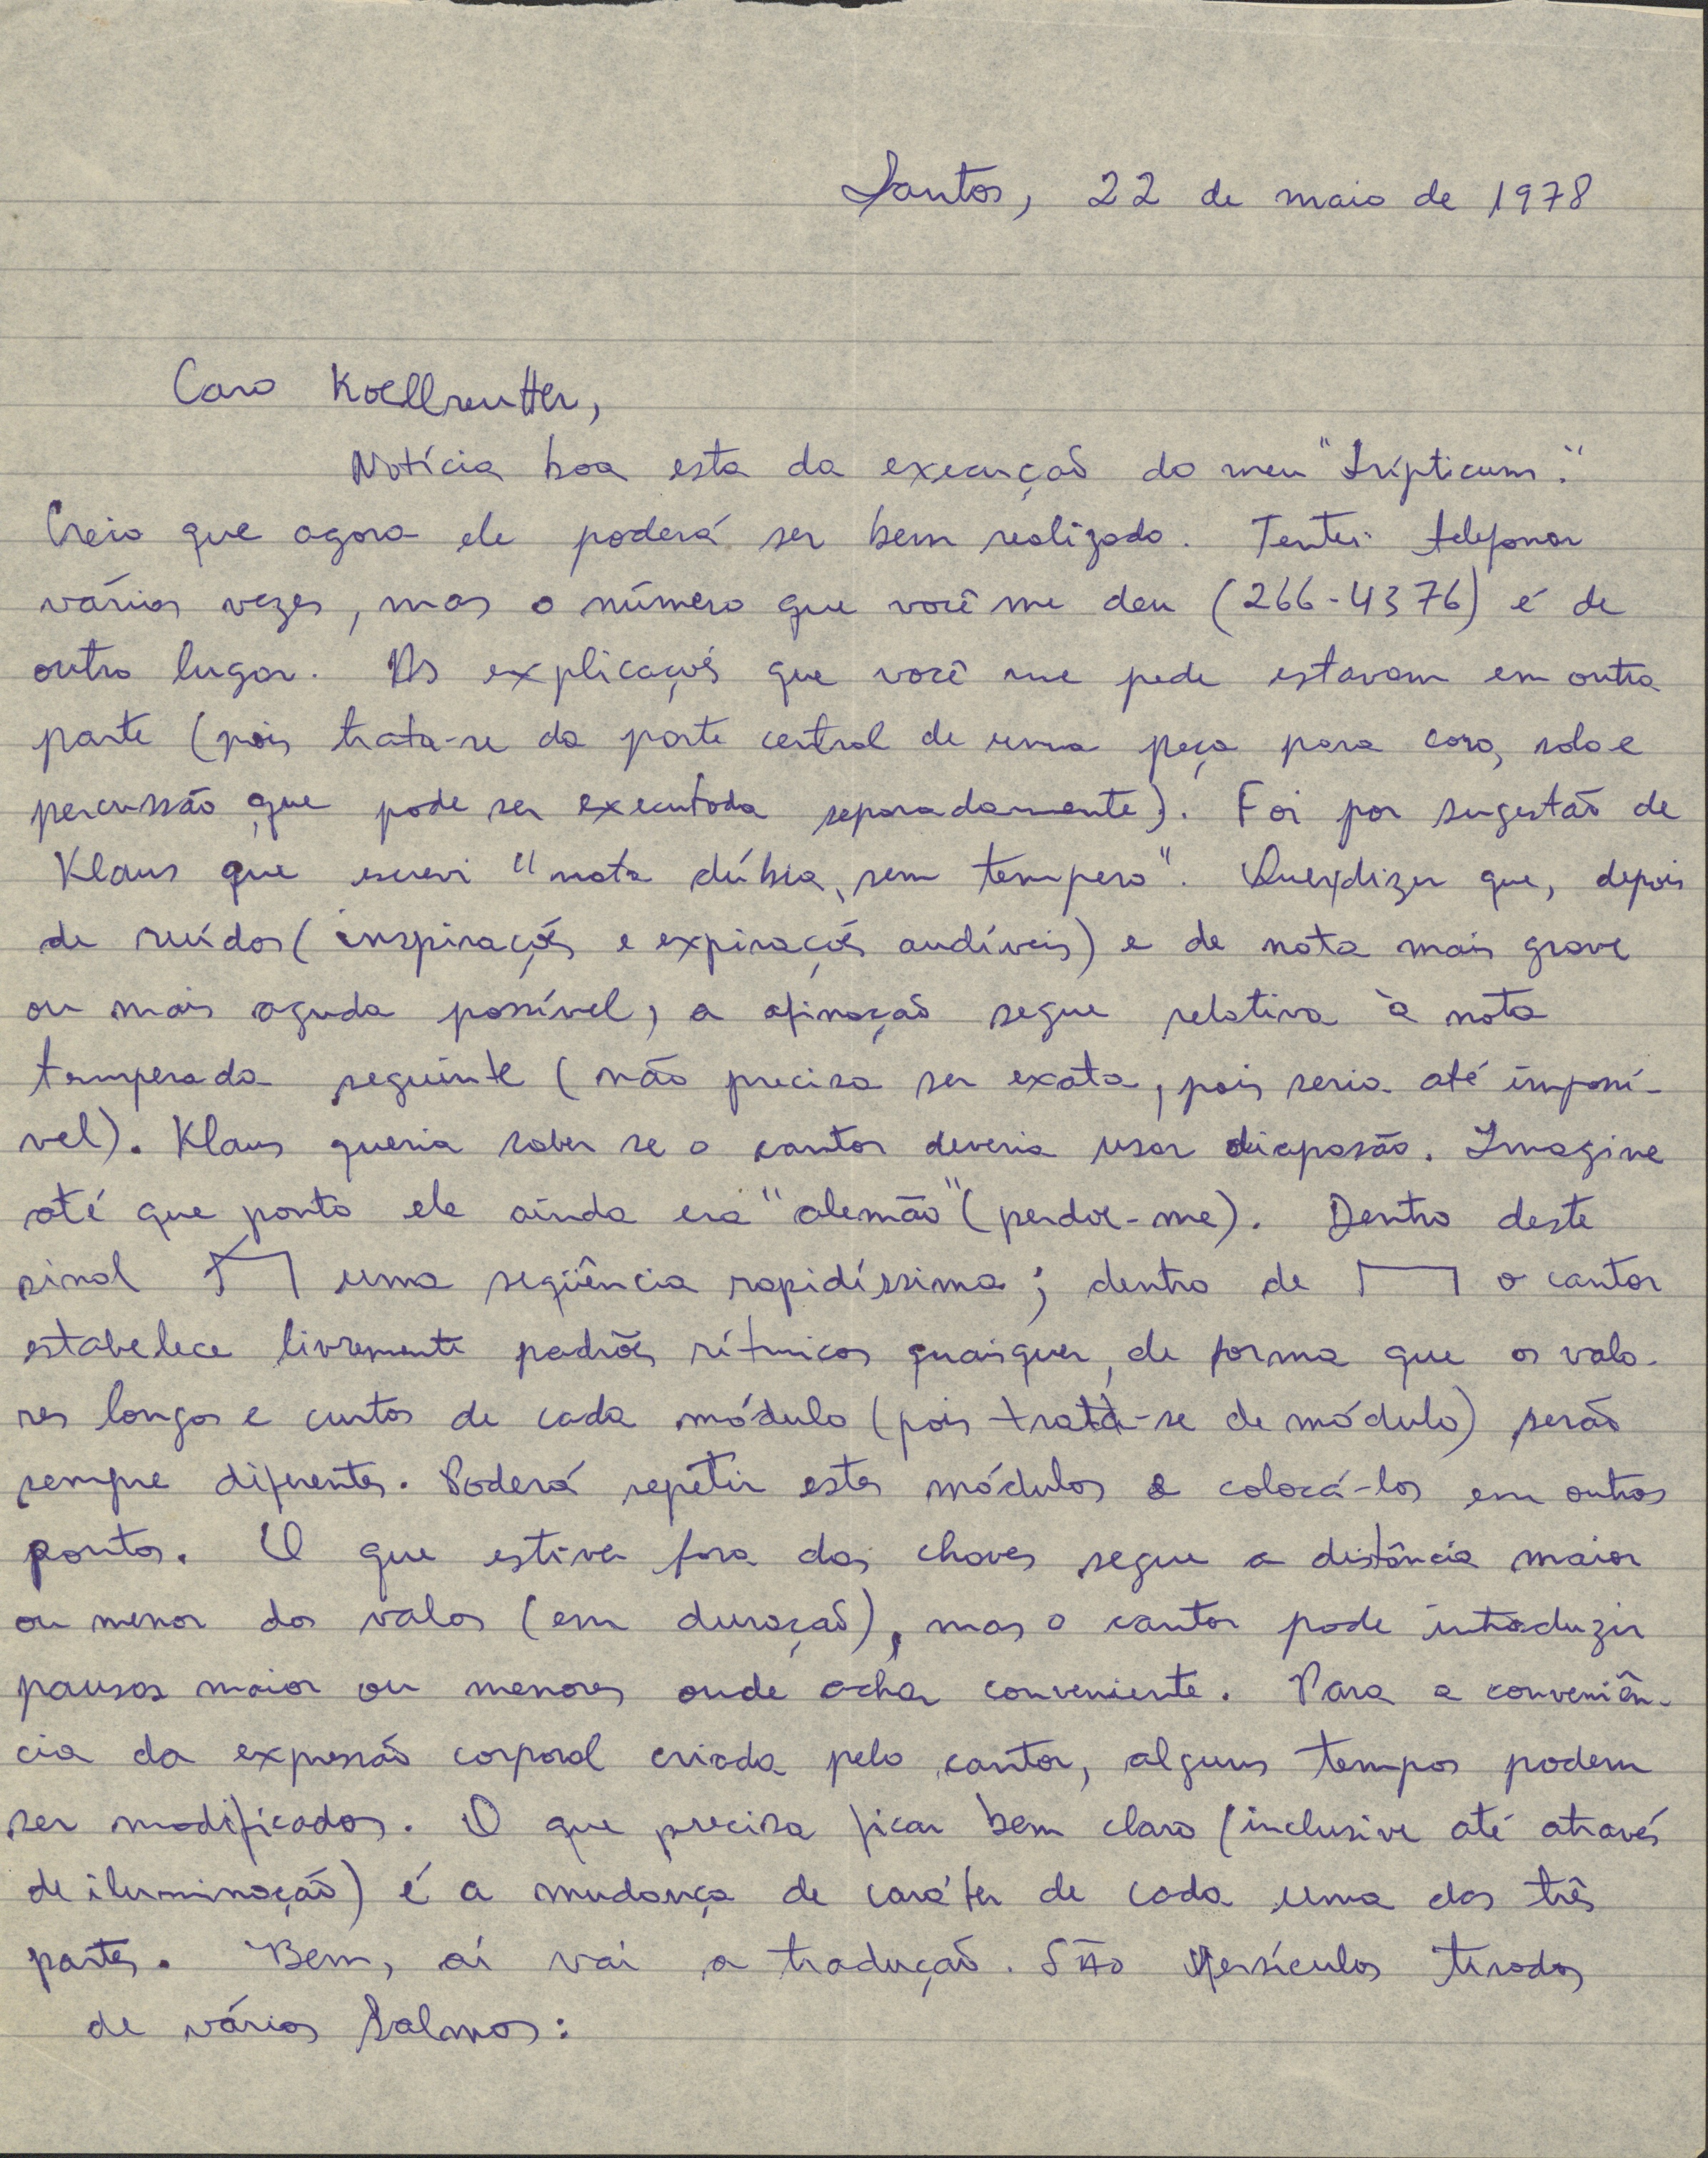 Santos, 22 de maio de 1978
Caro Koellreutter,
Notícia boa esta da execução do meu "Trípticum".
Creio que agora ele poderá ser bem realizado. Tentei telefonar
várias vezes, mas o número que você me deu (266-4376) é de
outro lugar. As explicações que você me pede estavam em outra
parte (pois trata-se da parte central de uma peça para coro, solo e
percussão que pode ser executada separadamente). Foi por sugestão de
Klaus que escrevi "nota dúbia, sem tempero". Quer dizer que, depois
de ruídos (inspirações e expirações audíveis) e de nota mais grave
ou mais aguda possível, a afinação segue relativa à nota
temperada seguinte (não precisa ser exata, pois seria até impossí-
vel). Klaus queria saber se o cantor deveria usar diapasão. Imagine
até que ponto ele ainda era "alemão" (perdoe-me). Dentro deste
sinal uma seqüência rapidíssima; dentro de o cantor
estabelece livremente padrões rítmicos quaisquer, de forma que os valo-
res longos e curtos de cada módulo (pois trata-se de módulo) serão
sempre diferentes. Poderá repetir estes módulos e colocá-los em outros
pontos. O que estiver fora das chaves segue a distância maior
ou menor dos valos (em duração), mas o cantor pode introduzir
pausas maior ou menores onde achar conveniente. Para a conveniên-
cia da expressão corporal criada pelo cantor, alguns tempos podem
ser modificados. O que precisa ficar bem claro (inclusive até através
de iluminação) é a mudança de caráter de cada uma das três
partes. Bem, aí vai a tradução. São versículos tirados
de vários Salmos: